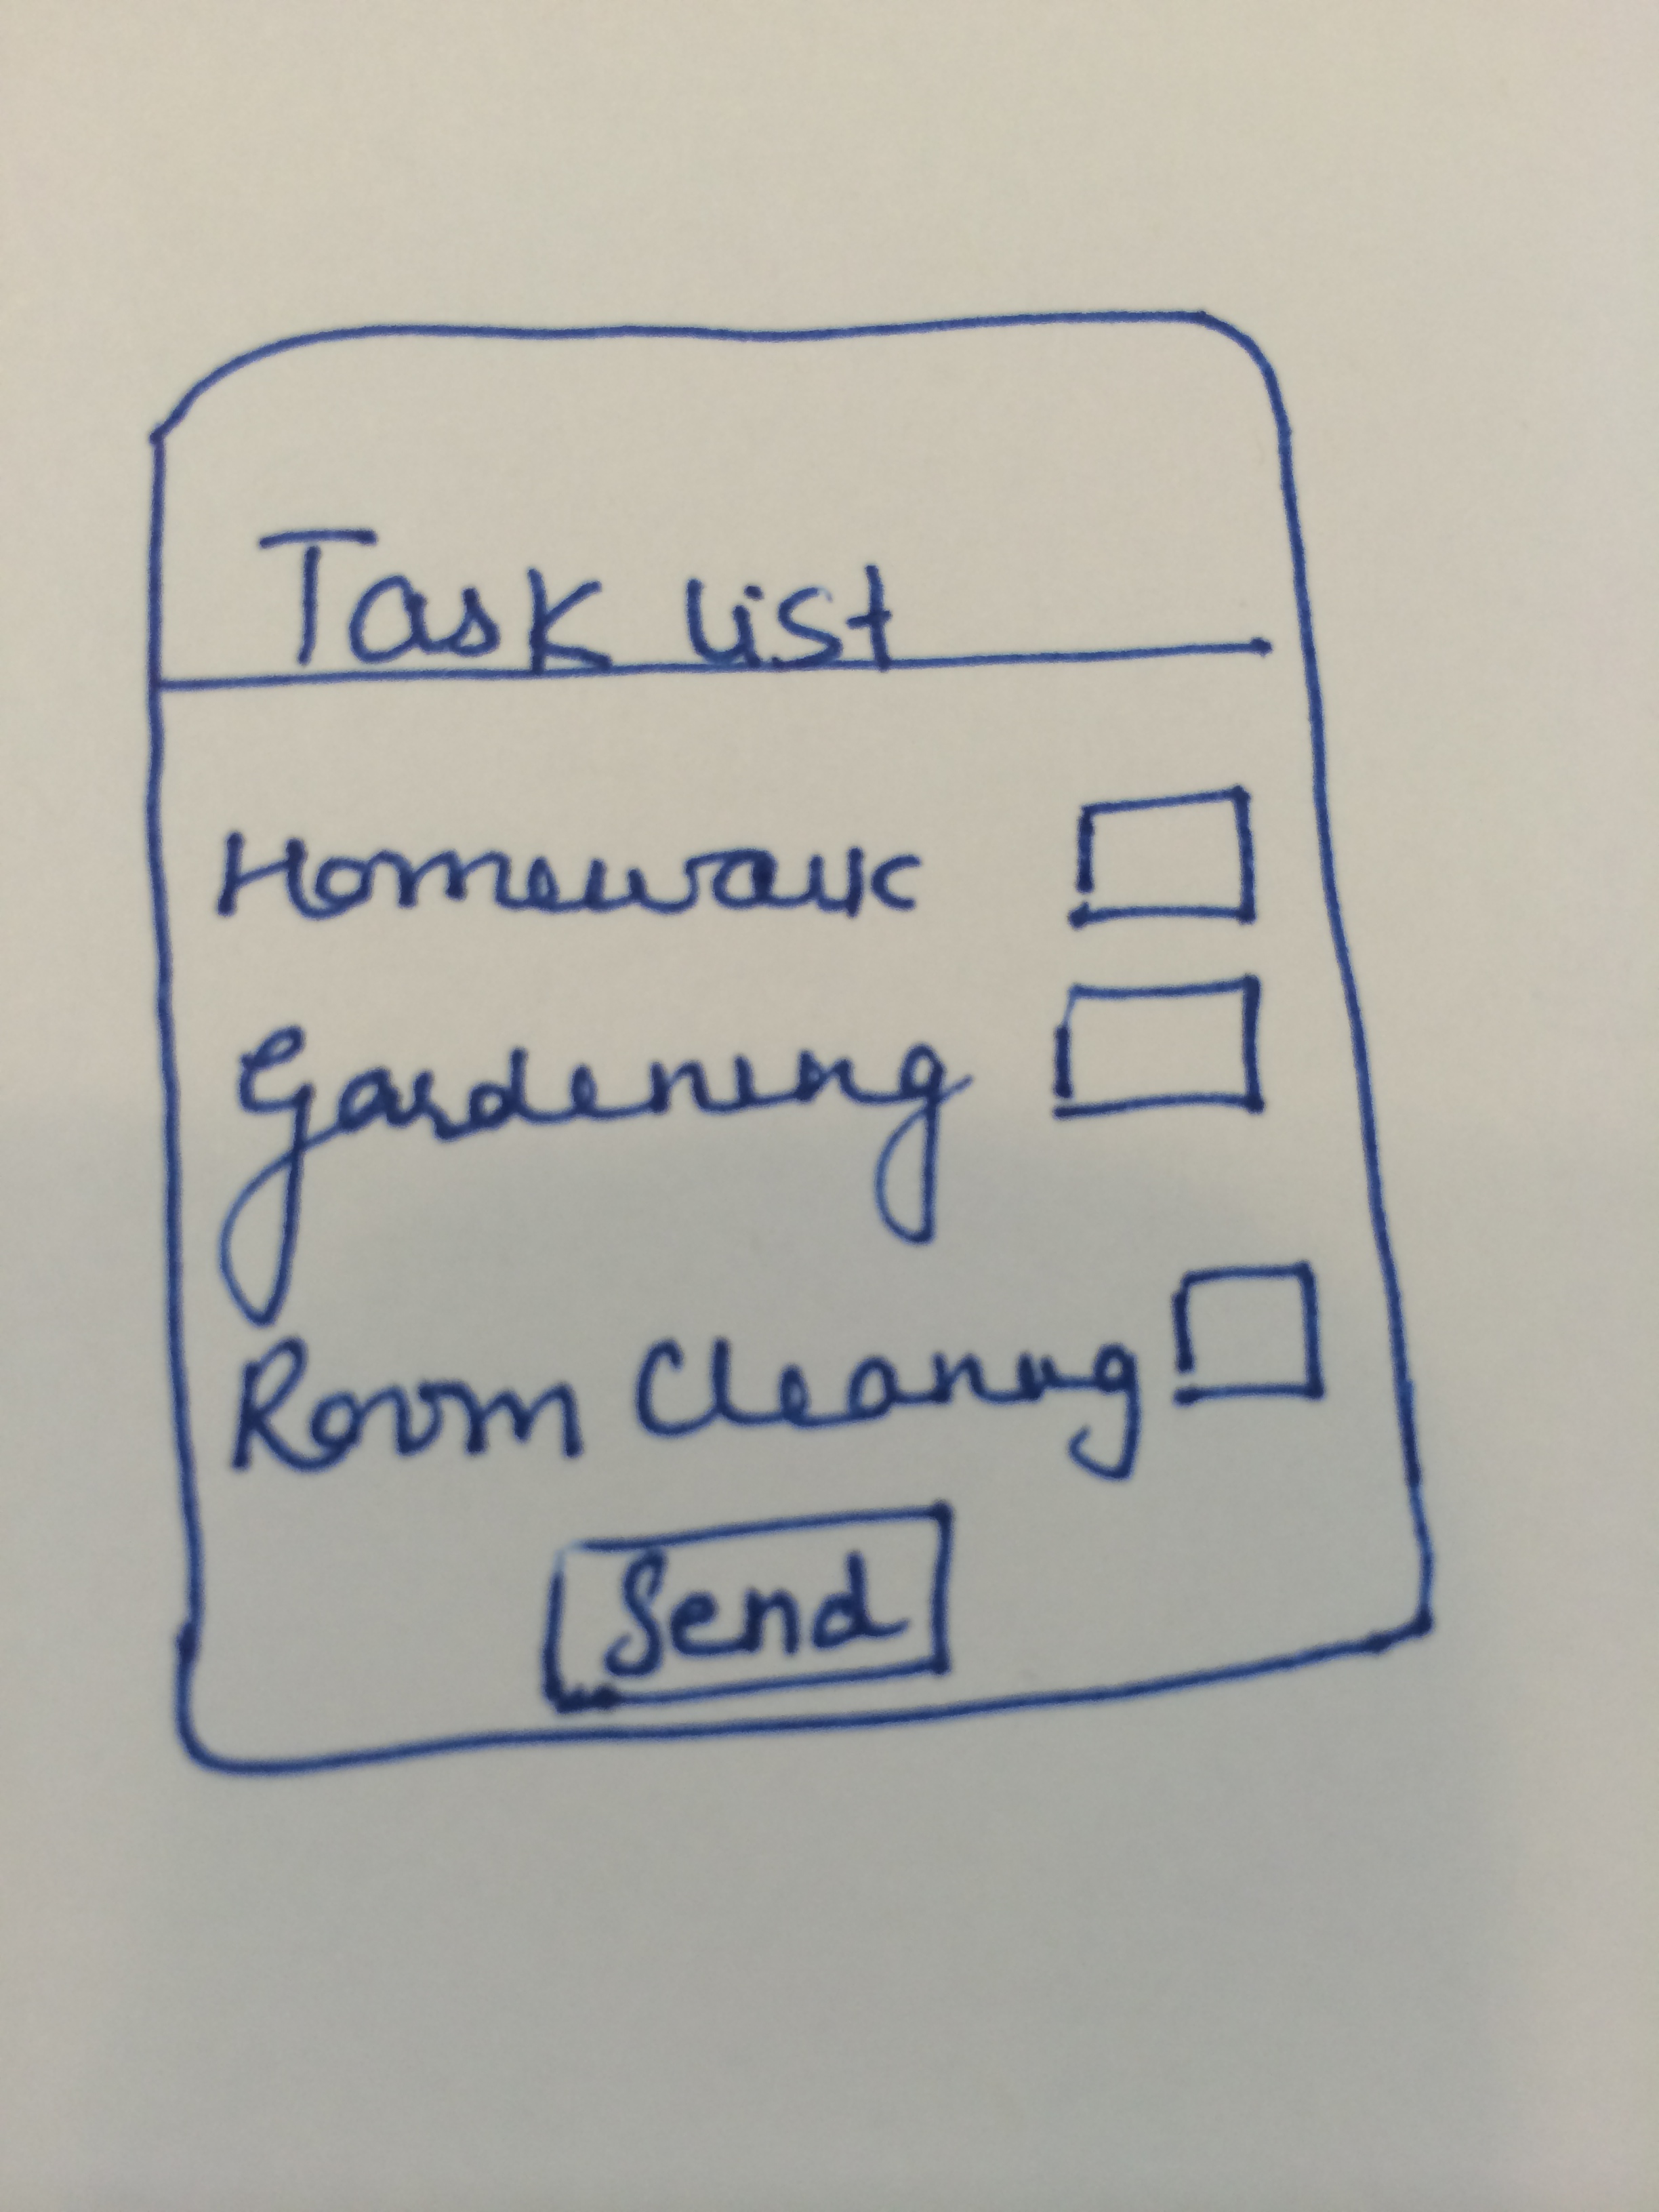 Task list
Homework
Gardening
Room Cleaning
Send